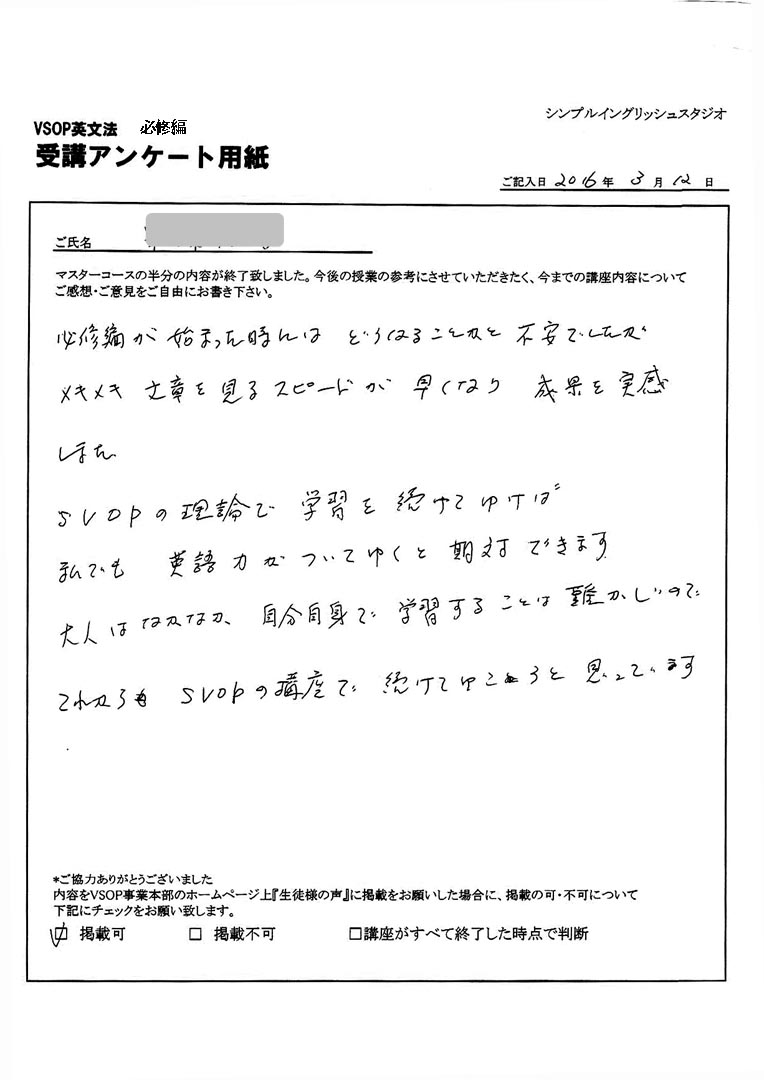 シンプルイングリッシュスタジオ
VSOP英文法 必修編
受講アンケート用紙
ご記入日 2016年 3月 12日
ご氏名
マスターコースの半分の内容が終了致しました。今後の授業の参考にさせていただきたく、今までの講座内容について
ご感想・ご意見をご自由にお書き下さい。
必修編が 始まった時には どうなることかと 不安でしたが
メキメキ 文章を見るスピードが 早くなり 成果を実感
しました
SVOPの理論で 学習を続けてゆけば
私でも 英語力がついてゆくと期対できます
大人はなかなか、自分自身で学習することは難かしいので
これからも SVOPの講座で 続けてゆこうと思っています
*ご協力ありがとうございました
内容をVSOP事業本部のホームページ上『生徒様の声』に掲載をお願いした場合に、掲載の可・不可について
下記にチェックをお願い致します。
☑ 掲載可 □ 掲載不可 □講座がすべて終了した時点で判断